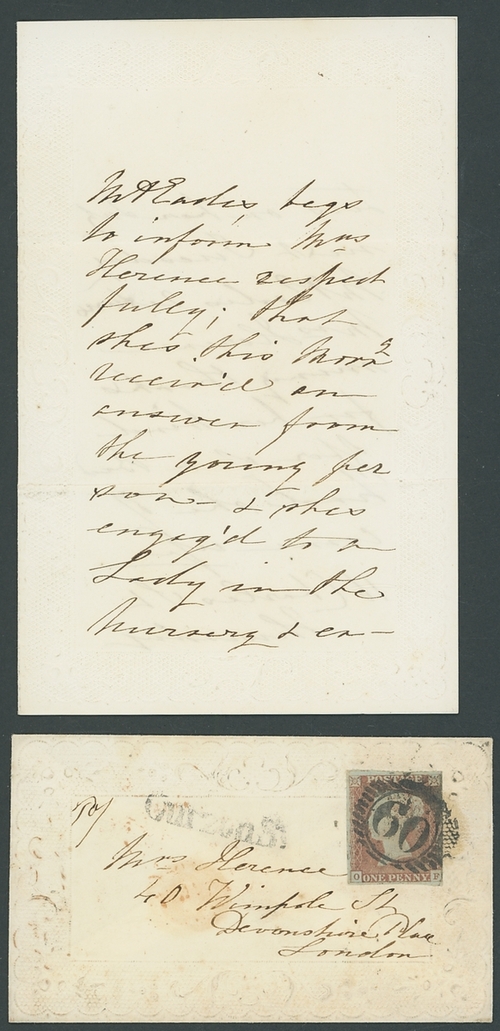 Mr Eades begs
to inform Mrs
Florence respect
fully; that
she's this Morng
receiv'd an
answer from
the young per
son & she's
engag'd to a
Lady in the
Nursery & ca-
Curzon St
POSTAGE
60
O ONE PENNY F
Mrs Florence
40 Wimpole St
Devonshire Place
London